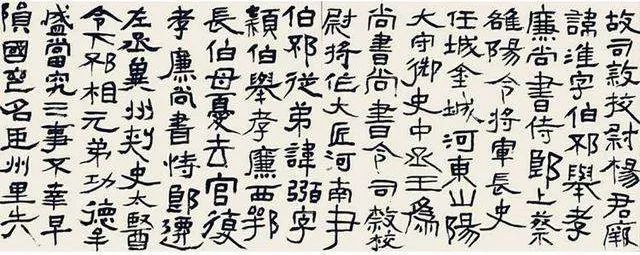 故司隸校尉楊君厥
諱淮字伯邳舉孝
廉尚書侍郎上蔡
雒陽令將軍長史
任城金城河東山陽
大守御史中丞王爲
尚書尚書令司隸校
尉將作大匠河南尹
伯邳從弟諱弼字
穎伯舉孝廉西鄂
長伯母憂去官復
孝廉尚書侍郎遷
左丞冀州刺史太醫
令下邳相元弟功德牟
盛當究三事不幸早
隕國喪名臣州里失